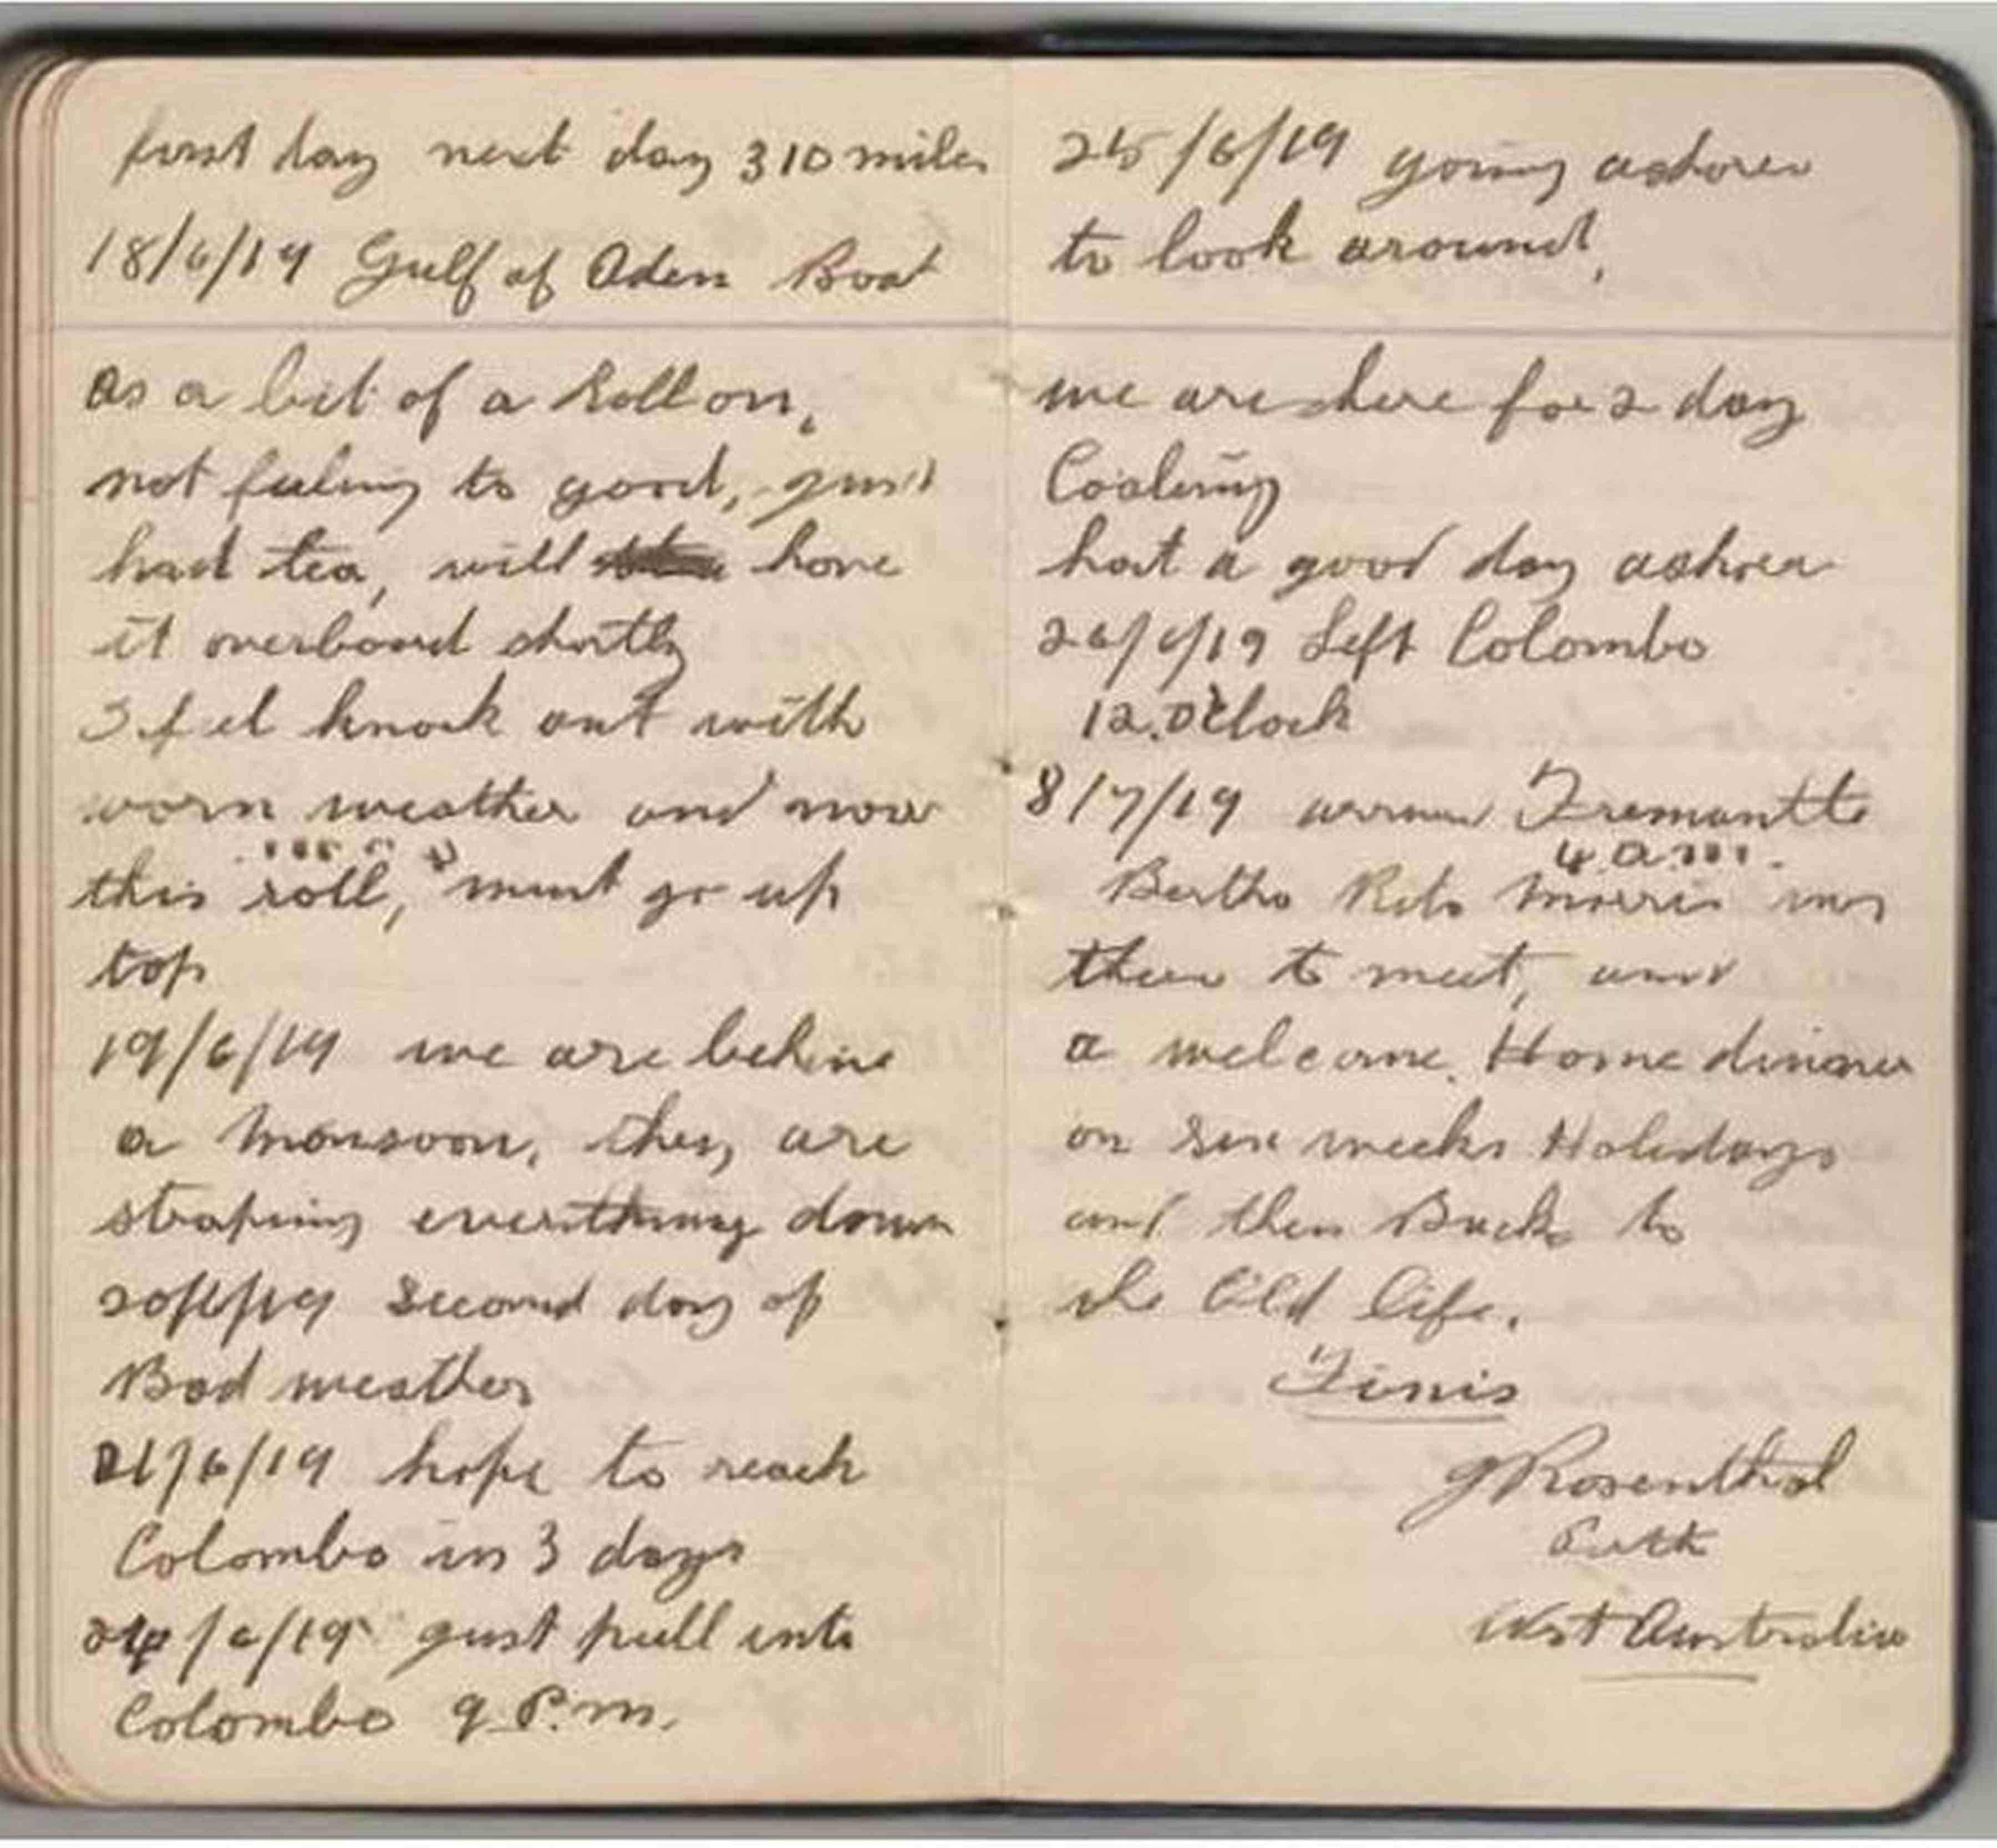 first day next day 310 miles
18/6/19 Gulf of Aden Boat
as a bit of a Roll on,
not feeling to good, just
had tea, will have
it overboard shortly
I feel knock out with
worm weather and now
this roll, must go up
top
19/6/19 we are behind
a monsoon, they are
straping everithing down
20/6/19 Second day of
Bad weather
21/6/19 hope to reach
Colombo in 3 days
24/6/19 gust pull into
Colombo 9 P.m.
25/6/19 going ashore
to look around,
we are here for 2 day
Coaling
hat a good day ashore
26/6/19 Left Colombo
12.O'Clock
8/7/19 Fremantle
4.a.m.
Bertha Morris was
there to meet, and
a welcome Home dinner
on Six weeks Holidays
and then Back to
the Old life.
Finis
G Rosenthal
Perth
West Australia